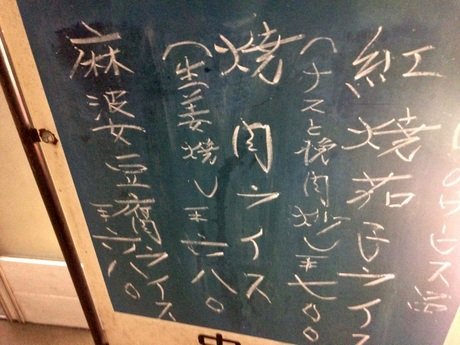 のサービス
紅焼茄子ライス
(ナスと挽肉炒)¥七〇〇
焼肉ライス
(生姜焼)¥六八〇
麻婆豆腐ライス
¥六八〇
中